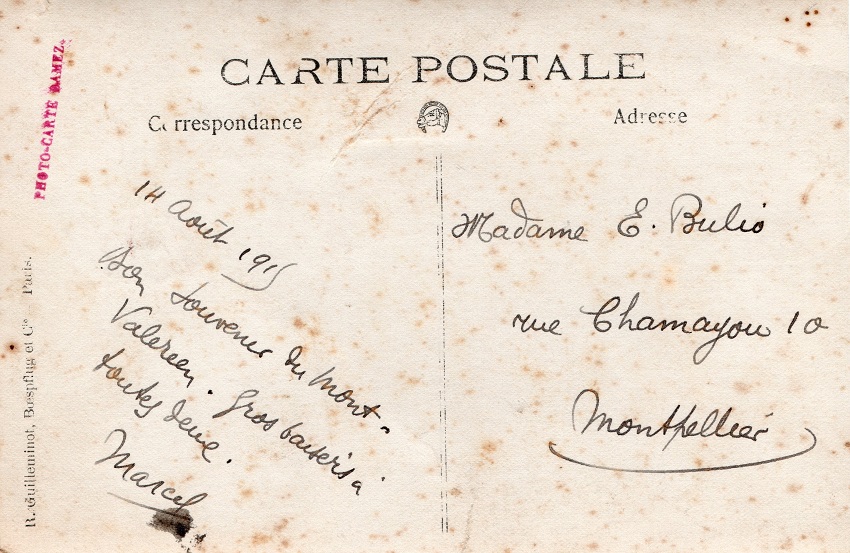 CARTE POSTALE
Correspondance
Adresse
PHOTO-CARTE DAMEZ.
R. Guilleminot, Bœspflug et Cie Paris.
14 Août 1915
Bon souvenir du Mont-
Valérien. Gros baisers à
toutes deux.
Marcel
Madame E. Bulio
rue Chamayou 10
Montpellier